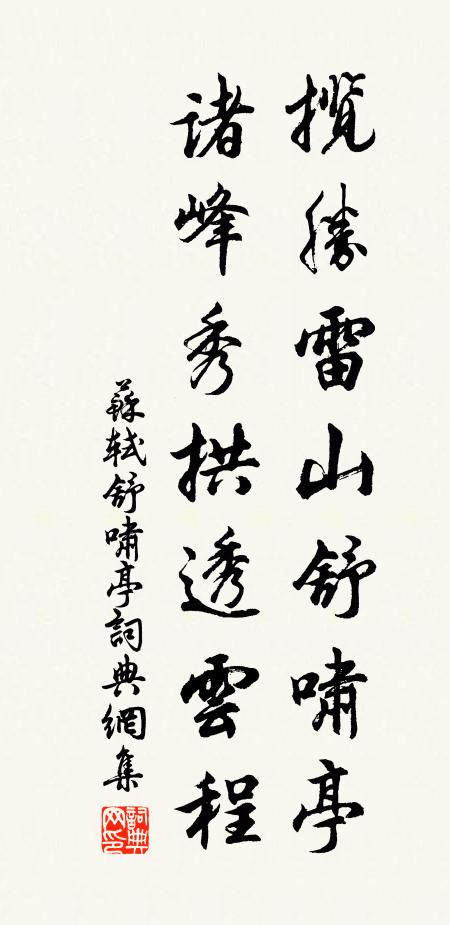 攬勝雷山舒嘯亭
諸峰秀拱透雲程
蘇軾舒嘯亭詞典網集
詞典网印